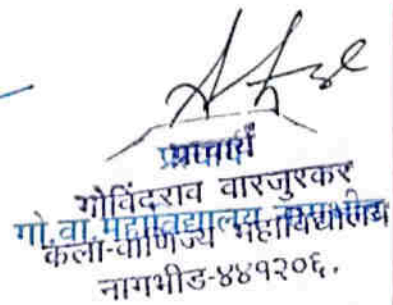 प्राचार्य
गोविंदराव वारजुरकर
गो.वा.महाविद्यालय, नागभीड
कला-वाणिज्य महाविद्यालय
नागभीड-४४१२०६.